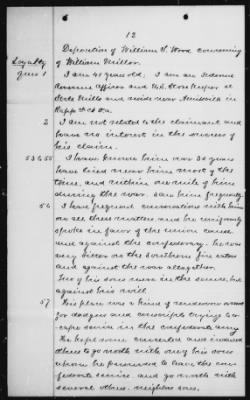 12
Deposition of William S. Wood concerning
Loyalty of William Miller.
ques 1 I am 48 years old. I am an
Revenue officer and U.S. Store Keeper at
Mills and reside near Amissville in
Rapp. Co Va.
2 I am not related to the claimant and
have no interest in the success of
his claim.
53 & 55 I have known him over 30 years
have lived near him most of the
time, and within one mile of him
during the war. saw him frequently.
56 I have frequent conversations with him
on all these matters and he uniformly
spoke in favor of the union cause
and against the confederacy. he was
very bitter on the Southern fire eaters
and against the war altogether.
One of his sons was in the service, but
against his will.
57 His place was a kind of rendezvous
for dodgers and conscripts trying to es-
cape service in the confederate army
He kept some concealed and induced
others to go north with one of his sons
whom he persuaded to leave the con-
federate service and go north with
several others. neighbors sons.